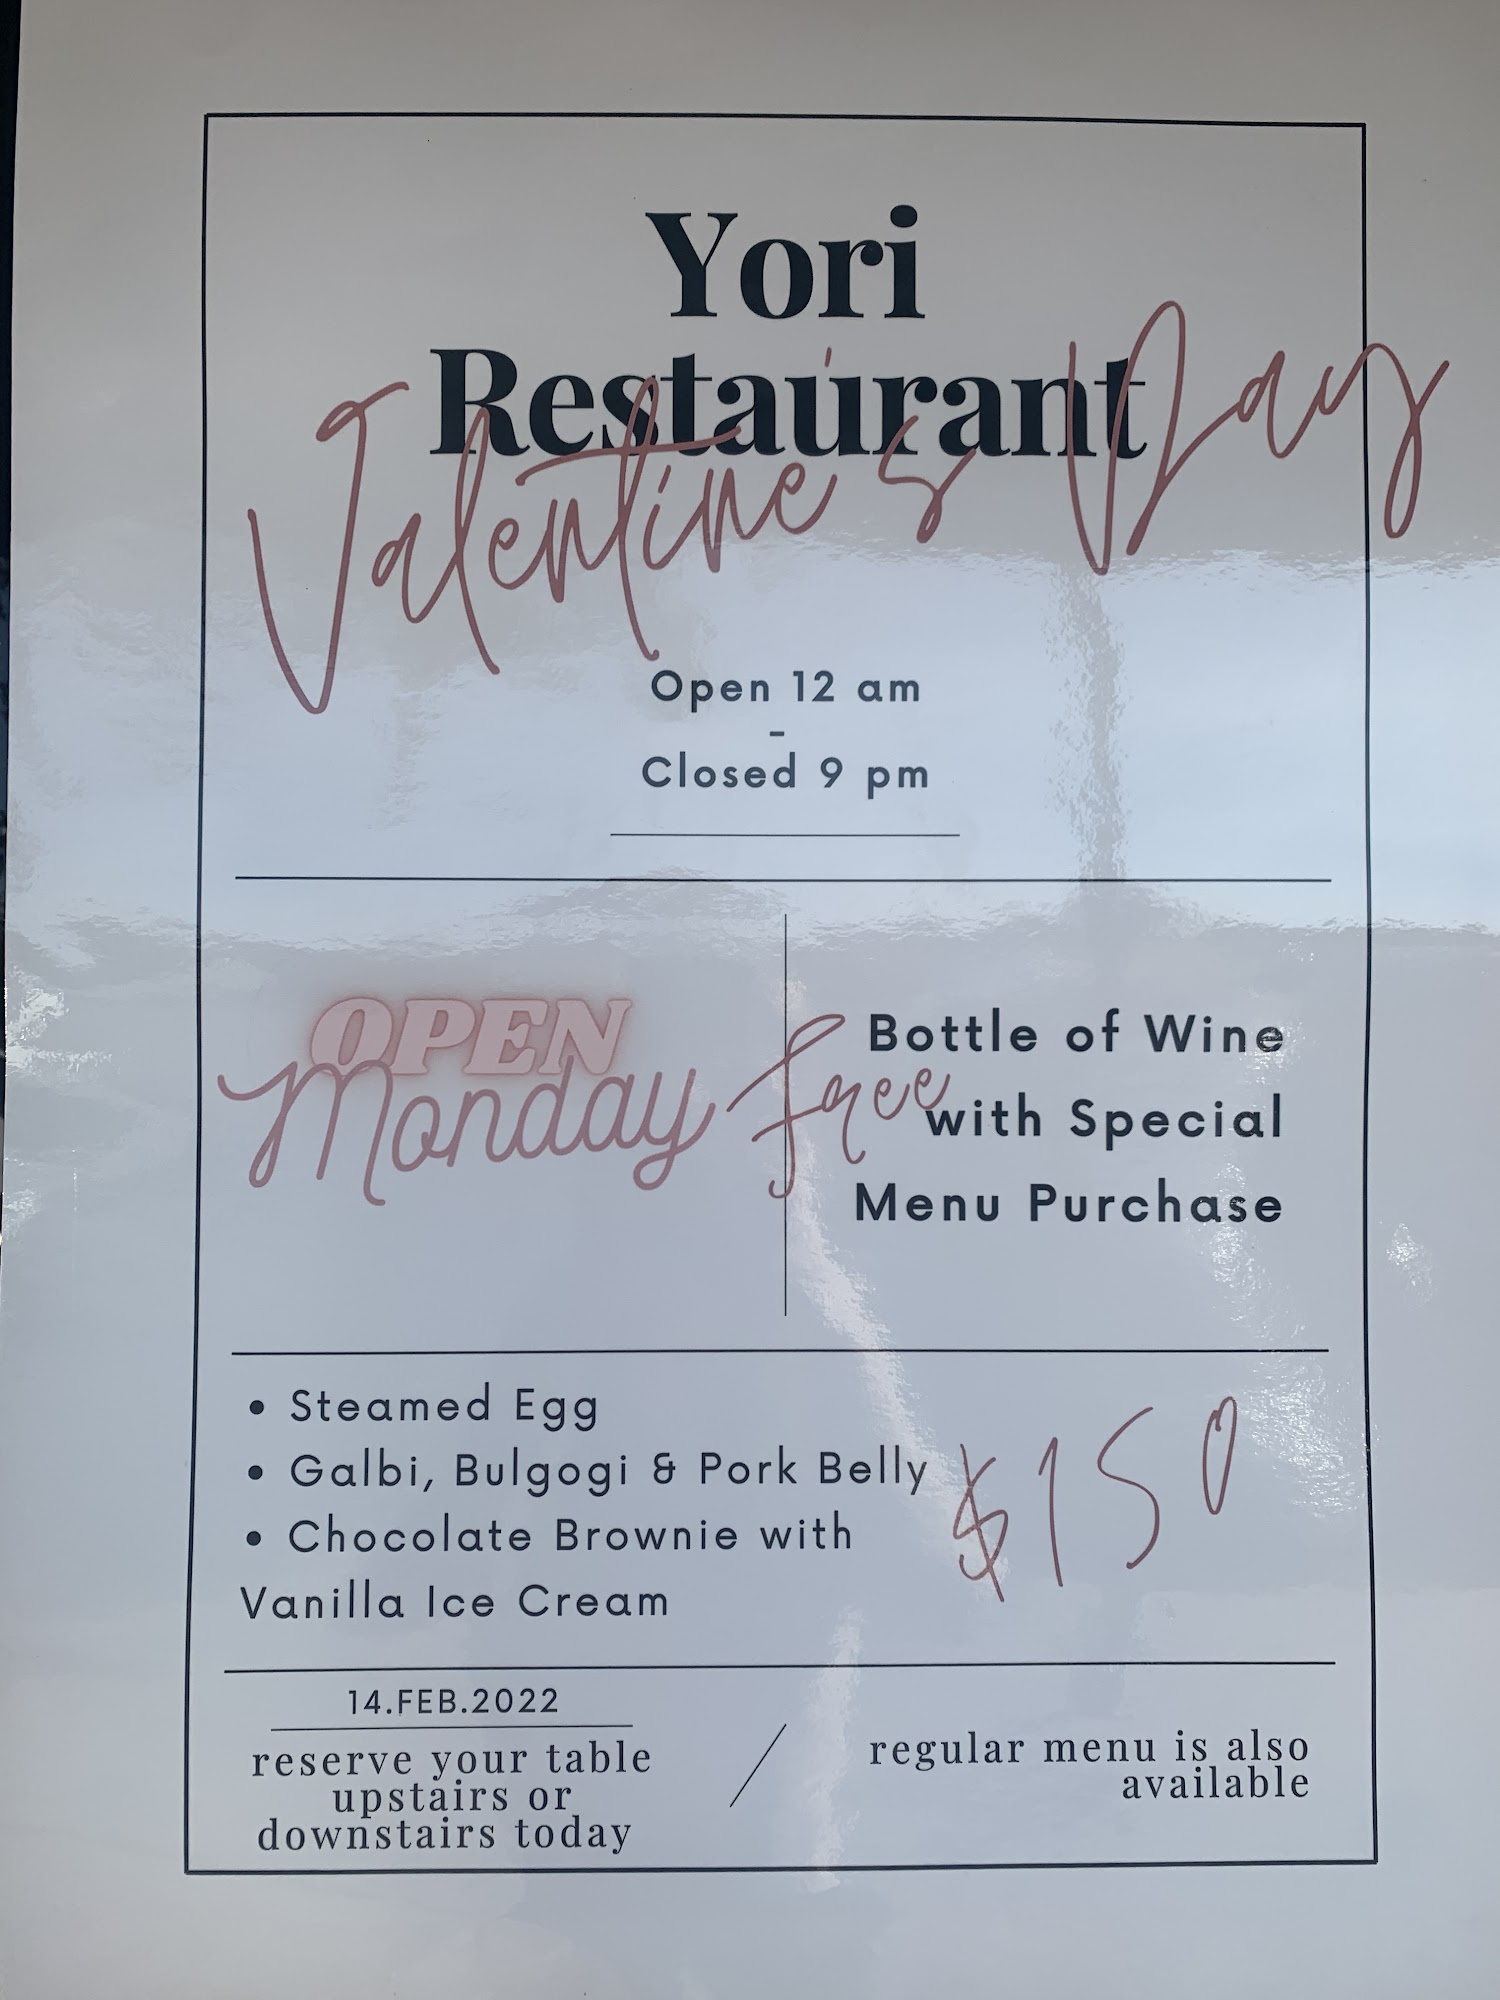 Yori
Restaurant
Valentine's Day
Open 12 am
-
Closed 9 pm
OPEN
Monday
free
Bottle of Wine
with Special
Menu Purchase
• Steamed Egg
• Galbi, Bulgogi & Pork Belly
• Chocolate Brownie with
Vanilla Ice Cream
$150
14.FEB.2022
reserve your table
upstairs or
downstairs today
/
regular menu is also
available